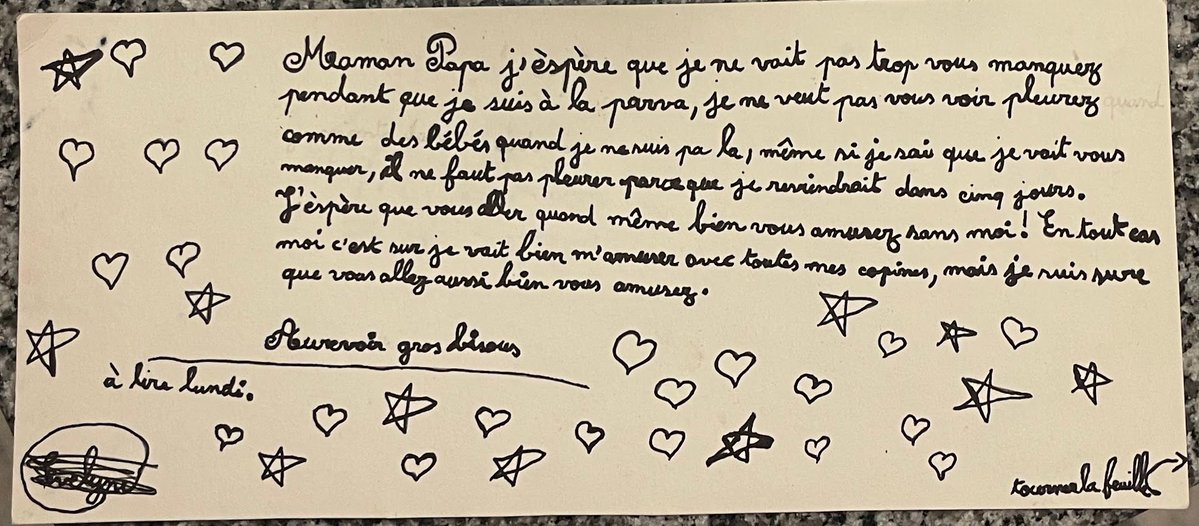 Maman Papa j'èspère que je ne vait pas trop vous manquez
pendant que je suis à la parva, je ne veut pas vous voir pleurez
comme des bébés quand je ne suis pa la, même si je sais que je vait vous
manquer, il ne faut pas pleurer parce que je reviendrait dans cinq jours.
J'èspère que vous aller quand même bien vous amusez sans moi! En tout cas
moi c'est sur je vait bien m'amuser avec toutes mes copines, mais je suis sure
que vous allez aussi bien vous amusez.
Aurevoir gros bisous
à lire lundi.
tourner la feuille